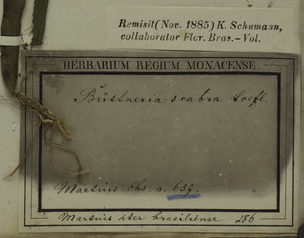 Remisit (Nov. 1885) K. Schumann,
collaborator Flor. Bras. - Vol.
HERBARIUM REGIUM MONACENSE.
Büttneria scabra Loefl.
Martius obs. n. 657.
Martius iter brasiliense 286